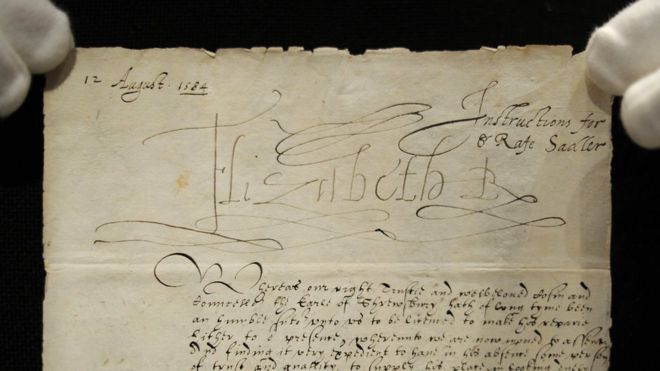 12 August 1584
Instructions for
Sr Rafe Sadler
Elizabeth R
Whereas our right Trustie and welbeloued Cosin and
Councellor the Earle of Shrewsbury hath of long tyme been
an humble suter vnto vs to be licensed to make his repaire
hither to or presence, wherunto we are now moved to assent
And finding it very expedient to haue in his absence some person
of trust and quallity to supply his place in looking